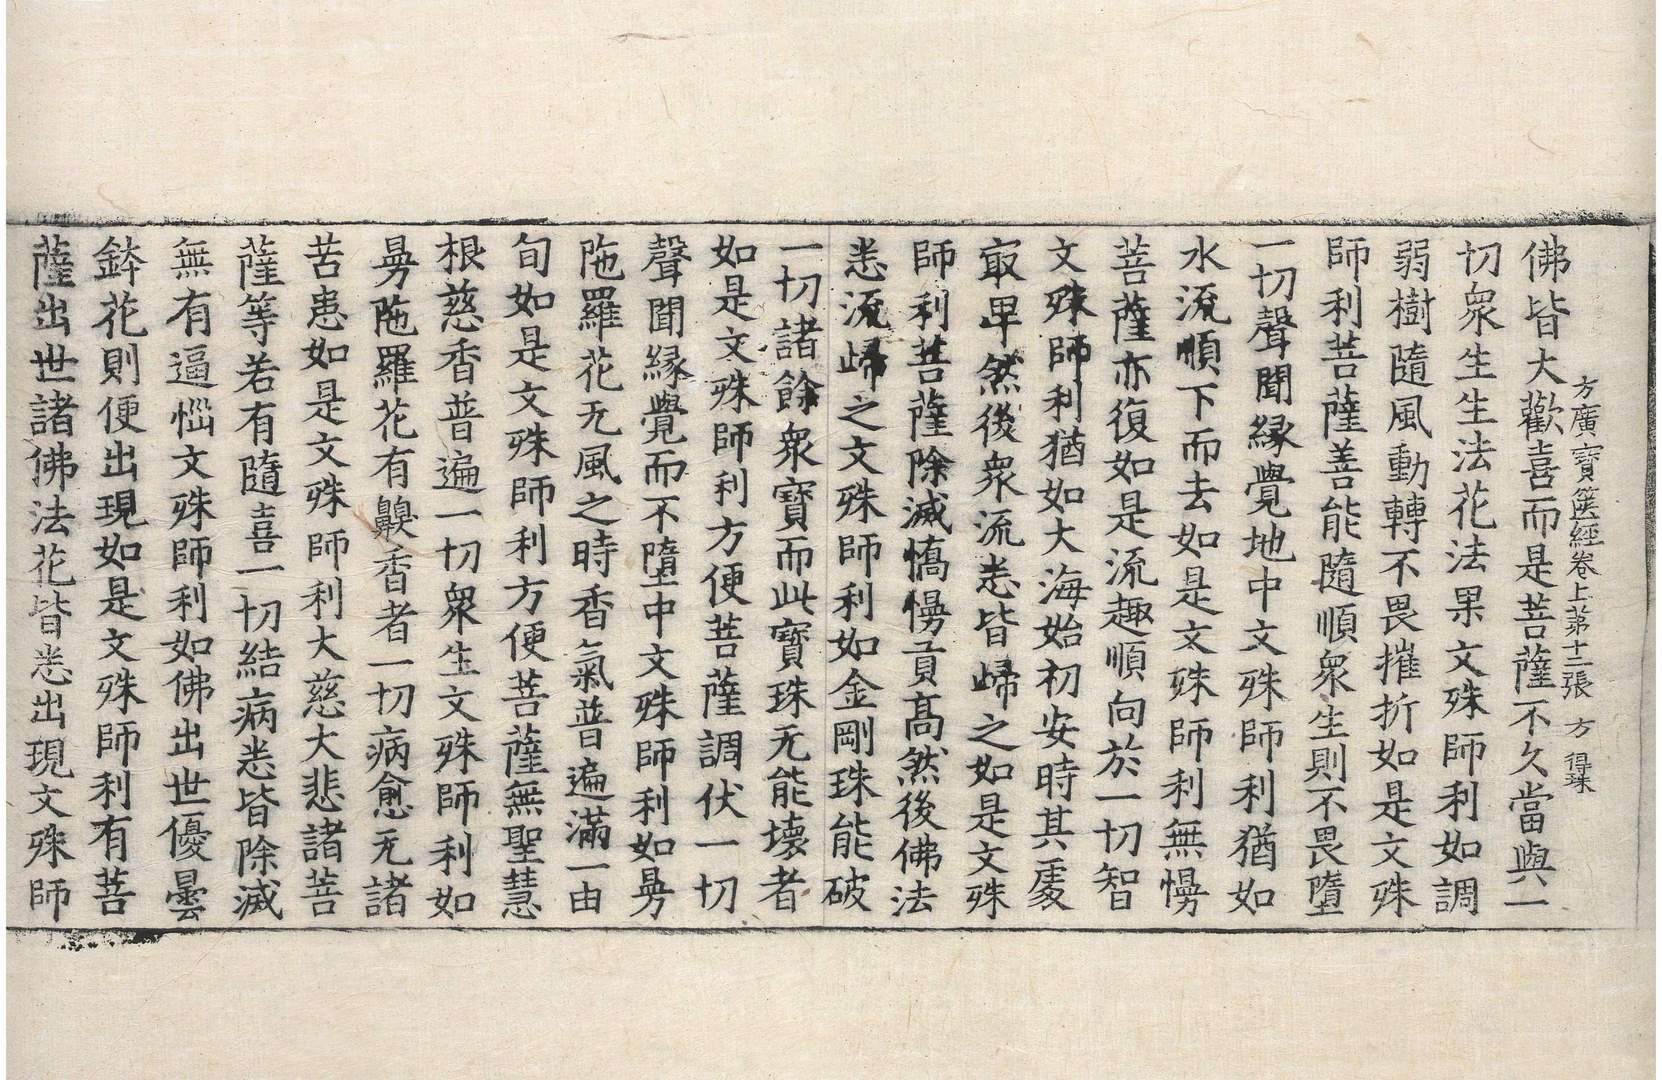 方廣寶篋經卷上 第十二張 方 得珠
佛皆大歡喜而是菩薩不久當與一
切衆生生法花法果文殊師利如調
弱樹隨風動轉不畏摧折如是文殊
師利菩薩善能隨順衆生則不畏墮
一切聲聞縁覺地中文殊師利猶如
水流順下而去如是文殊師利無慢
菩薩亦復如是流趣順向於一切智
文殊師利猶如大海始初安時其處
冣卑然後衆流悉皆歸之如是文殊
師利菩薩除滅憍慢貢髙然後佛法
悉流歸之文殊師利如金剛珠能破
一切諸餘衆寶而此寶珠无能壊者
如是文殊師利方便菩薩調伏一切
聲聞縁覺而不墮中文殊師利如曼
陁羅花无風之時香氣普遍滿一由
旬如是文殊師利方便菩薩無聖慧
根慈香普遍一切衆生文殊師利如
曼陁羅花有齅香者一切病愈无諸
苦患如是文殊師利大慈大悲諸菩
薩等若有隨喜一切結病悉皆除滅
無有逼惱文殊師利如佛出世優曇
鉢花則便出現如是文殊師利有菩
薩出世諸佛法花皆悉出現文殊師